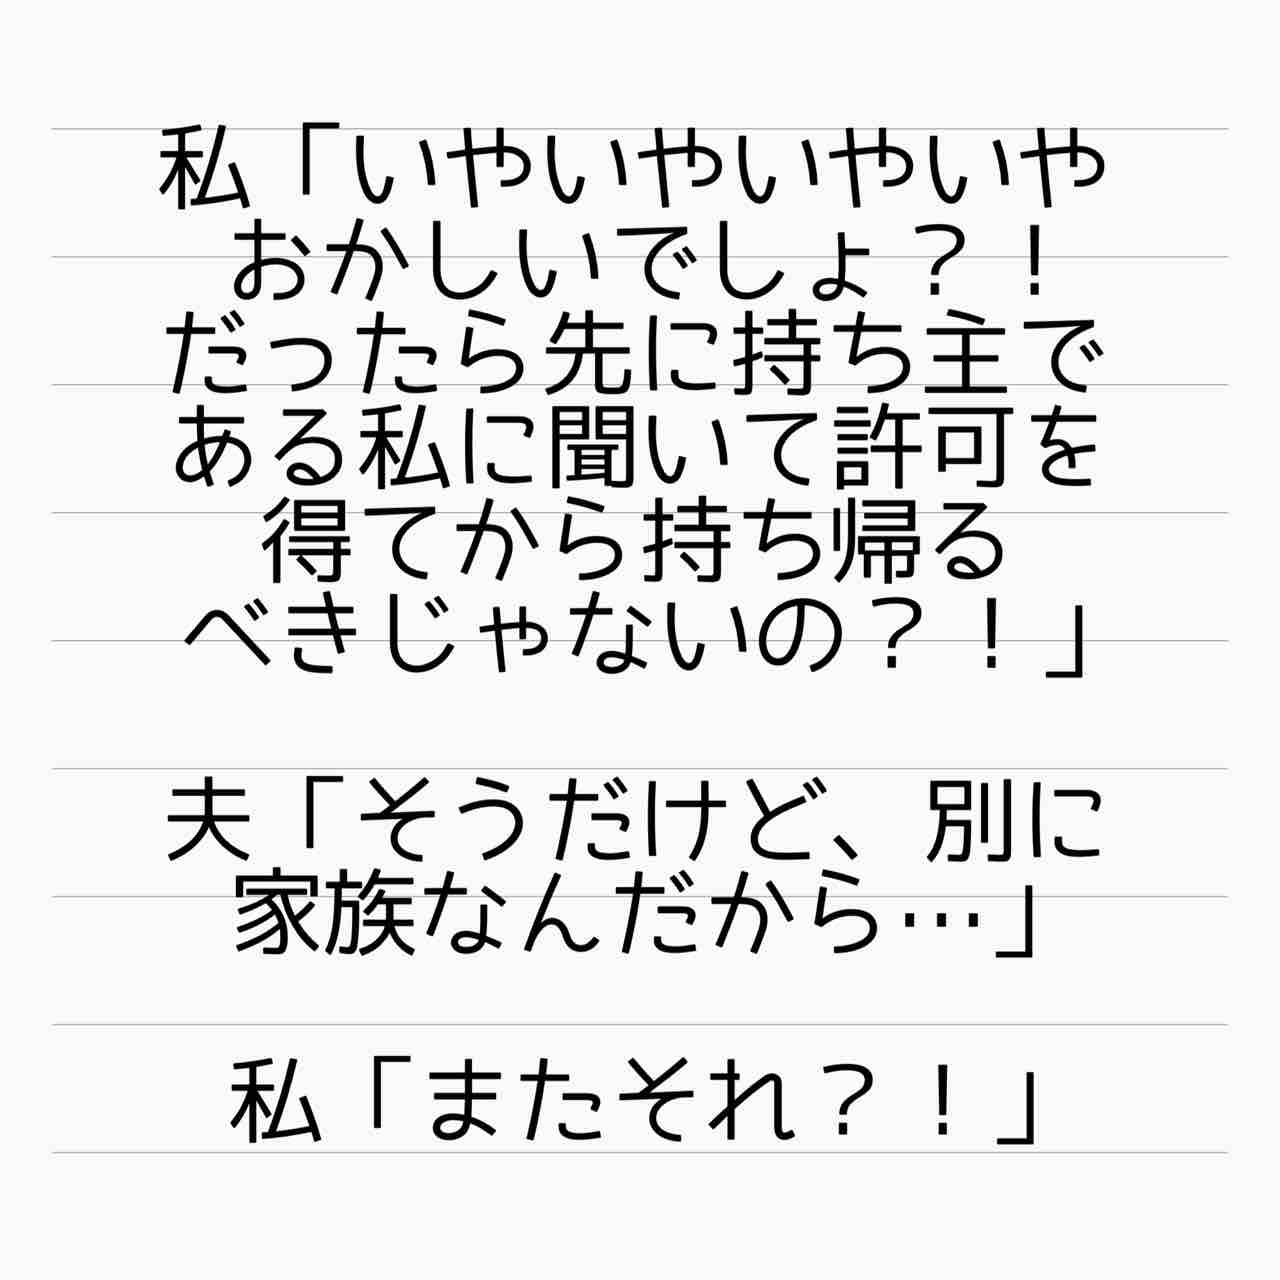 私「いやいやいやいや
おかしいでしょ？！
だったら先に持ち主で
ある私に聞いて許可を
得てから持ち帰る
べきじゃないの？！」
夫「そうだけど、別に
家族なんだから…」
私「またそれ？！」